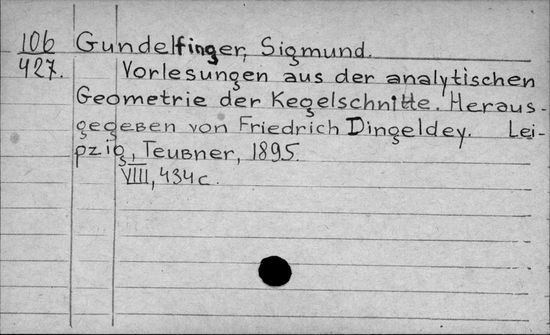 106
427.
Gundelfinger, Sigmund.
Vorlesungen aus der analytischen
Geometrie der Kegelschnitte. Heraus-
gegeben von Friedrich Dingeldey. Lei-
pzig, Teubner, 1895.
VIII, 434 c.